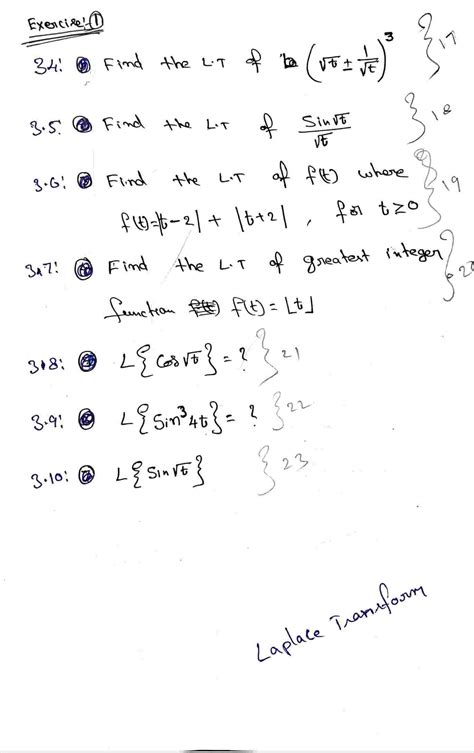 Exercise:- ①
3.4: Find the L.T of (√t ± 1/√t)³ } 17
3.5: Find the L.T of Sin√t/√t } 18
3.6: Find the L.T of f(t) where } 19
f(t)=|t-2| + |t+2| , for t≥0
3.7: Find the L.T of greatest integer } 20
function f(t) = ⌊t⌋
3.8: L{Cos√t} = ? } 21
3.9: L{Sin³4t} = ? } 22
3.10: L{Sin√t} } 23
Laplace Transform